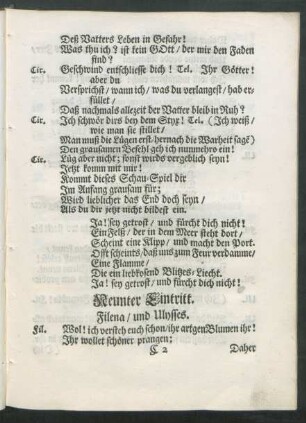 Deß Vatters Leben in Gefahr!
Was thu ich? ist kein GOtt/ der mir den Faden
find?
Cir. Geschwind entschliesse dich! Tel. Ihr Götter!
aber du
Versprichst/ wann ich/ was du verlangest/ hab er-
füllet/
Daß nachmals allezeit der Vatter bleib in Ruh?
Cir. Ich schwör dirs bey dem Styx! Tel. (Ich weiß/
wie man sie stillet/
Man muß die Lügen erst/hernach die Warheit sagē)
Den grausamen Befehl geh ich nunmehro ein!
Cir. Lüg aber nicht; sonst wirds vergeblich seyn!
Jetzt komm mit mir!
Kommt dieses Schau-Spiel dir
Im Anfang grausam für;
Wird lieblicher das End doch seyn/
Als du dir jetzt nicht bildest ein.
Ja! sey getrost/ und fürcht dich nicht!
Ein Felß/ der in dem Meer steht dort/
Scheint eine Klipp/ und macht den Port.
Offt scheints/daß uns zum Feur verdamme/
Eine Flamme/
Die ein liebkosend Blitzes-Liecht.
Ja! sey getrost/ und fürcht dich nicht!
Neunter Eintritt.
Filena/ und Ulysses.
Fil. Wol! ich versteh euch schon/ihr artgen Blumen ihr!
Ihr wollet schöner prangen;
C 2 Daher